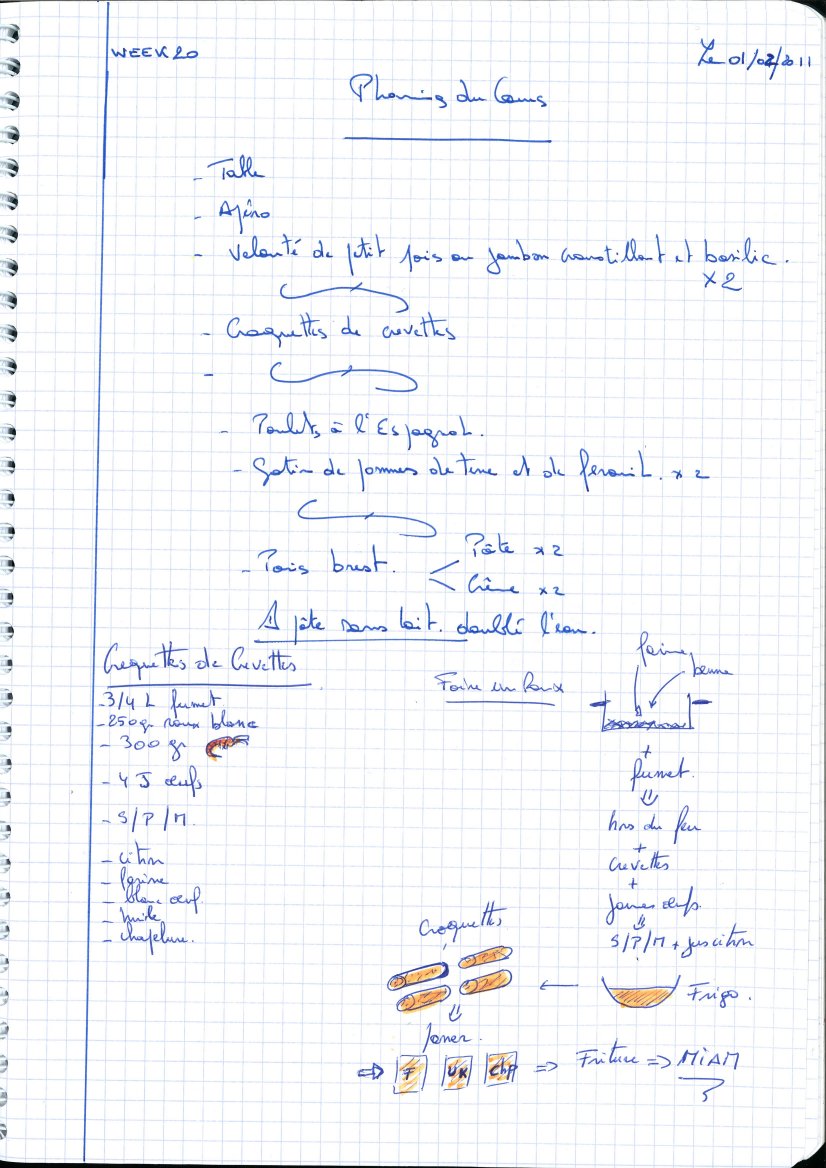 WEEK 20
Le 01/02/2011
Planning du Cours
- Table
- Apéro
- Velouté de petit pois au jambon croustillant et basilic.
x2
- Croquettes de crevettes
-
- Poulets à l'Espagnol.
- Gratin de pommes de terre et de fenouil. x2
- Paris brest. < Pâte x2
Crème x2
pâte sans lait. doublé l'eau.
Croquettes de Crevettes
- 3/4 L fumet
- 250 gr roux blanc
- 300 gr
- 4 J œufs
- S/P/M.
- citron
- farine
- blanc œuf
- huile
- chapelure.
Faire un Roux
farine
beurre
+
fumet.
⇓
hors du feu
+
crevettes
+
jaunes œufs.
⇓
S/P/M + jus citron
Frigo.
←
Croquettes
⇓
paner.
⇒ F UK Chp ⇒ Friture ⇒ MIAM